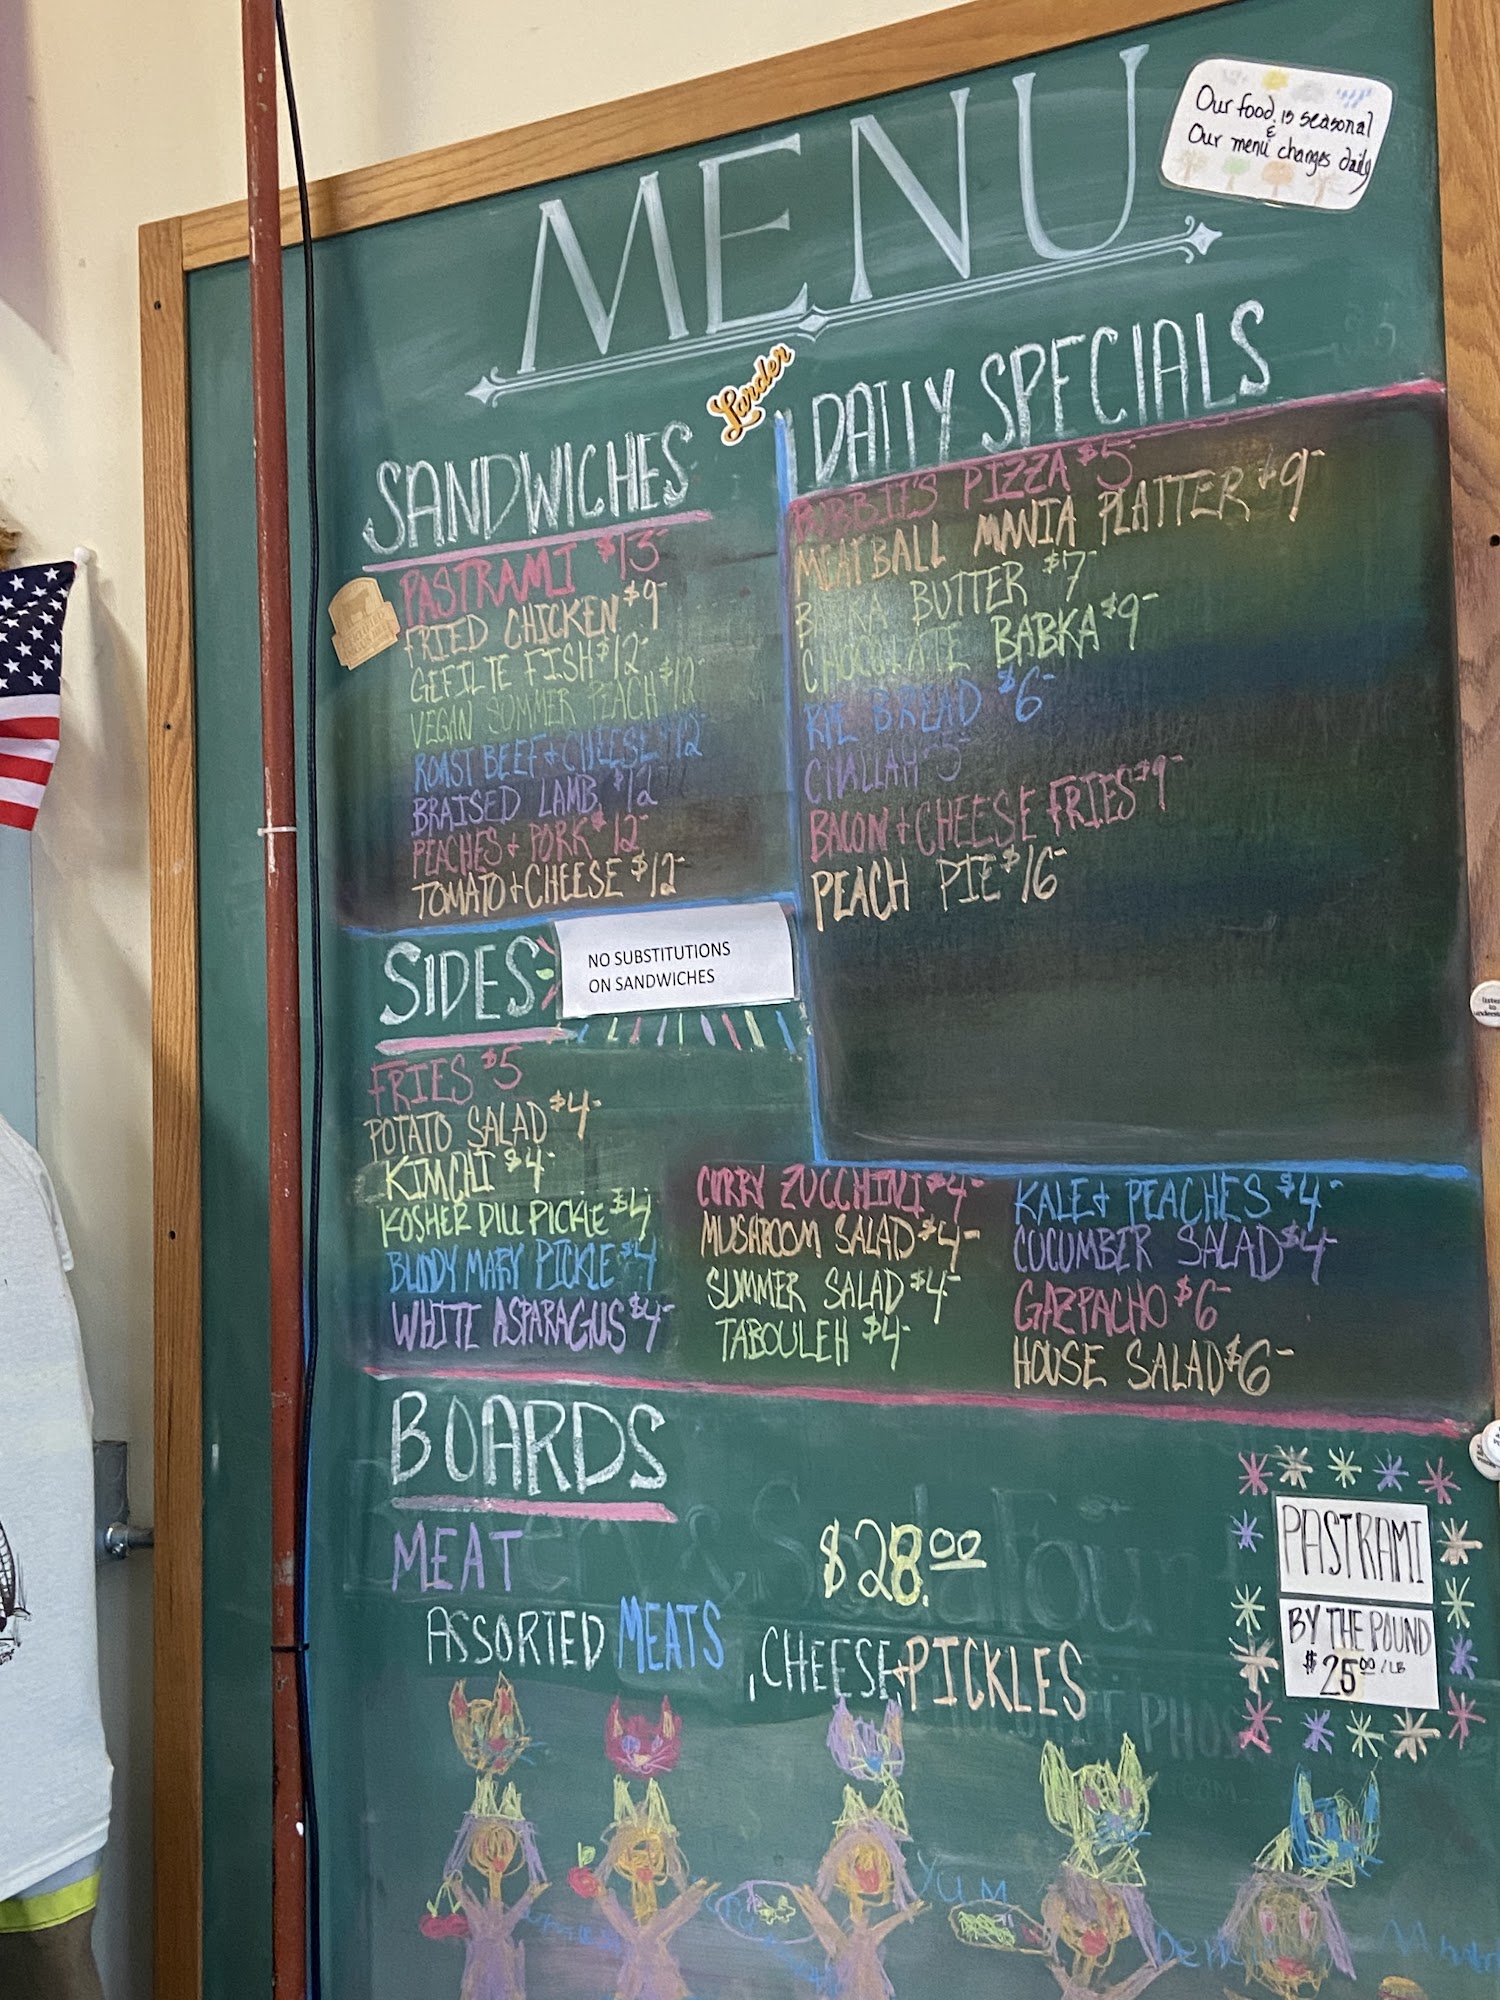 MENU
Our food is seasonal
&
Our menu changes daily
Larder
SANDWICHES
PASTRAMI $13-
FRIED CHICKEN $9-
GEFILTE FISH $12-
VEGAN SUMMER PEACH $12-
ROAST BEEF + CHEESE $12-
BRAISED LAMB $12-
PEACHES + PORK $12-
TOMATO + CHEESE $12-
DAILY SPECIALS
BOBBIE'S PIZZA $5-
MEATBALL MANIA PLATTER $9-
BUTTER $7-
CHOCOLATE BABKA $9-
RYE BREAD $6-
CHALLAH 5-
BACON + CHEESE FRIES $9-
PEACH PIE $16-
SIDES
NO SUBSTITUTIONS
ON SANDWICHES
FRIES $5
POTATO SALAD $4-
KIMCHI $4-
KOSHER DILL PICKLE $4
BLOODY MARY PICKLE $4
WHITE ASPARAGUS $4-
CURRY ZUCCHINI $4-
MUSHROOM SALAD $4-
SUMMER SALAD $4-
TABOULEH $4-
KALE + PEACHES $4-
CUCUMBER SALAD $4-
GAZPACHO $6-
HOUSE SALAD $6-
BOARDS
MEAT $28.00
ASSORTED MEATS, CHEESE + PICKLES
PASTRAMI
BY THE POUND
$25.00/LB
YUM